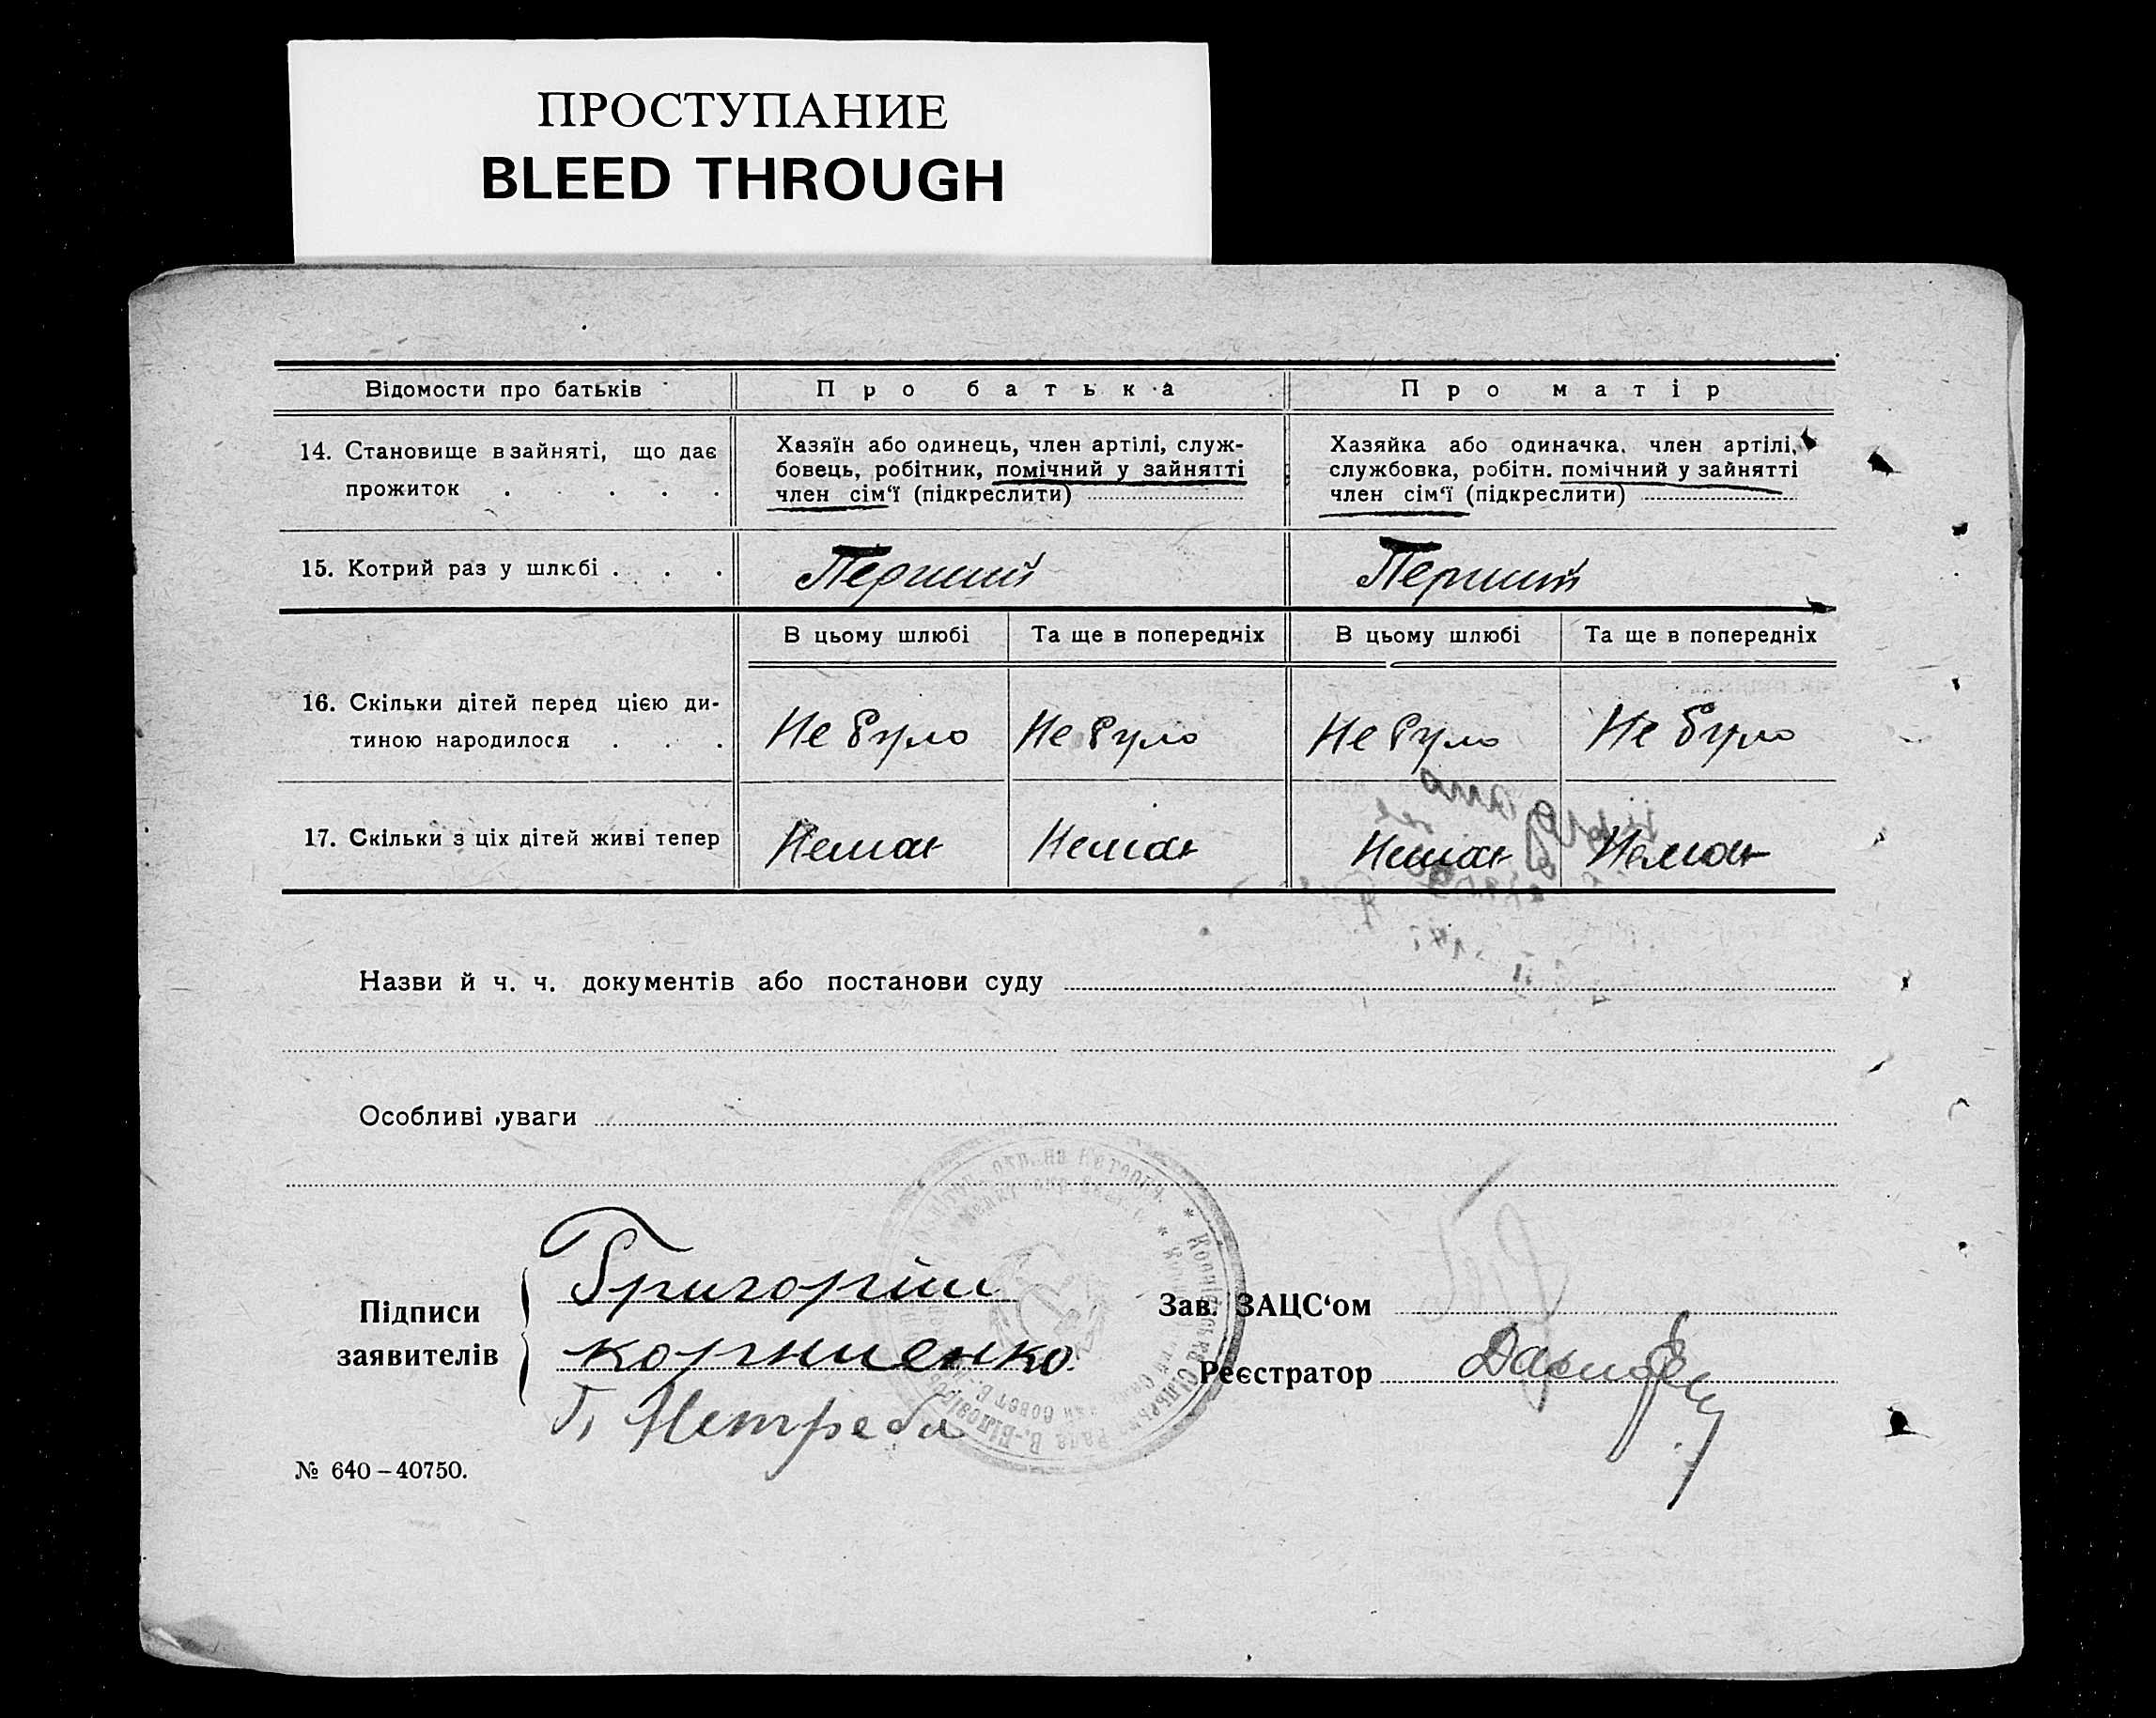 ПРОСТУПАНИЕ
BLEED THROUGH
Відомости про батьків
Про батька
Про матір
14. Становище в зайняті, що дає
прожиток . . . . .
Хазяїн або одинець, член артілі, служ-
бовець, робітник, помічний у зайнятті
член сім‘ї (підкреслити)
Хазяйка або одиначка, член артілі,
службовка, робітн. помічний у зайнятті
член сім‘ї (підкреслити)
15. Котрий раз у шлюбі . . .
Перший
Перший
В цьому шлюбі
Та ще в попередніх
В цьому шлюбі
Та ще в попередніх
16. Скільки дітей перед цією ди-
тиною народилося . . .
Не було
Не було
Не було
Не було
17. Скільки з ціх дітей живі тепер
Немає
Немає
Немає
Немає
Назви й ч. ч. документів або постанови суду
Особливі уваги
Підписи
заявителів
Григорій
корниенко
Г. Нетреба
Зав. ЗАЦС‘ом
Реєстратор
№ 640–40750.